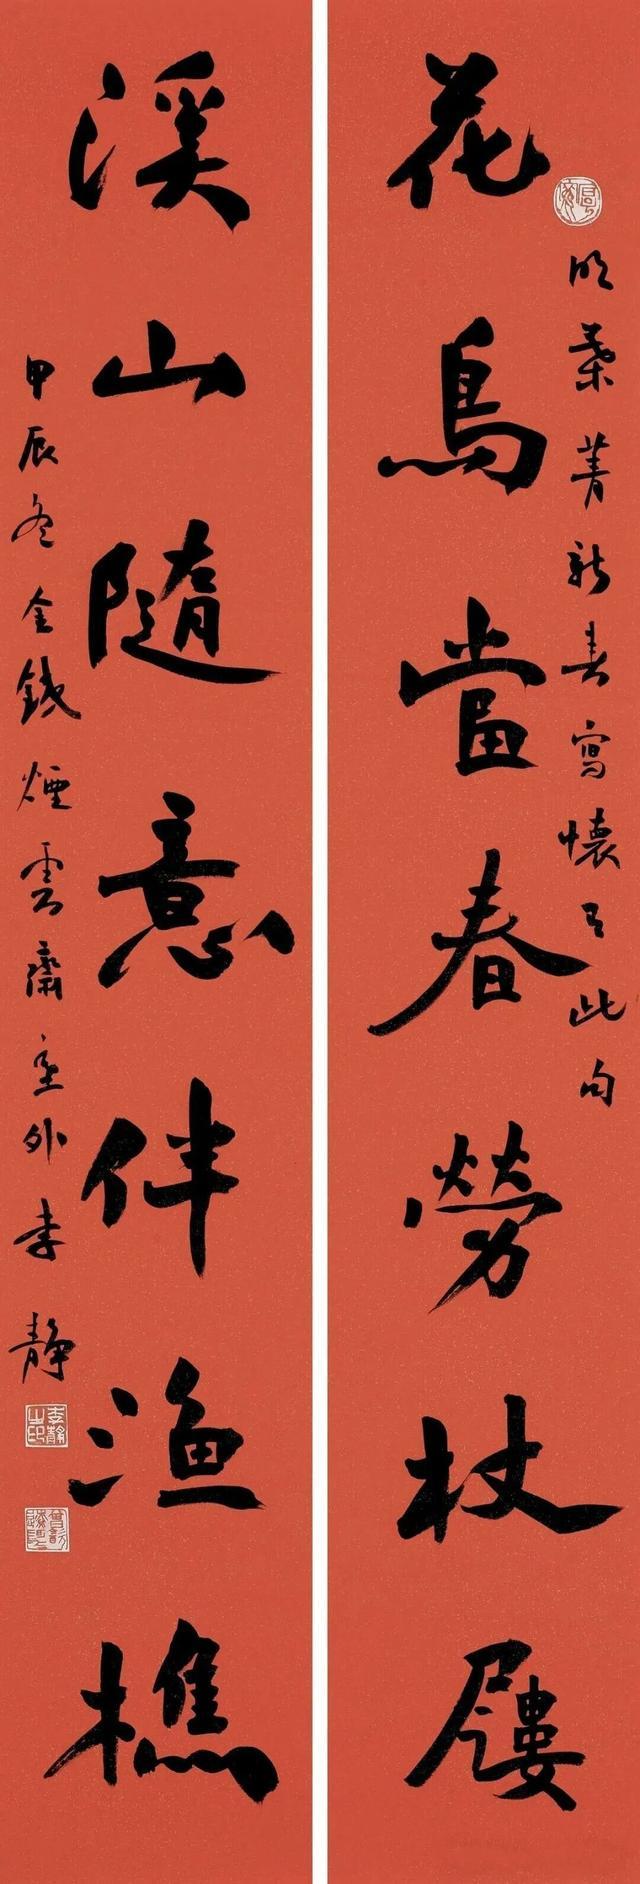 花鳥當春勞杖屨
明葉菁新春寫懷有此句
溪山隨意伴漁樵
甲辰冬金錢煙雲齋主外李靜
李靜之印